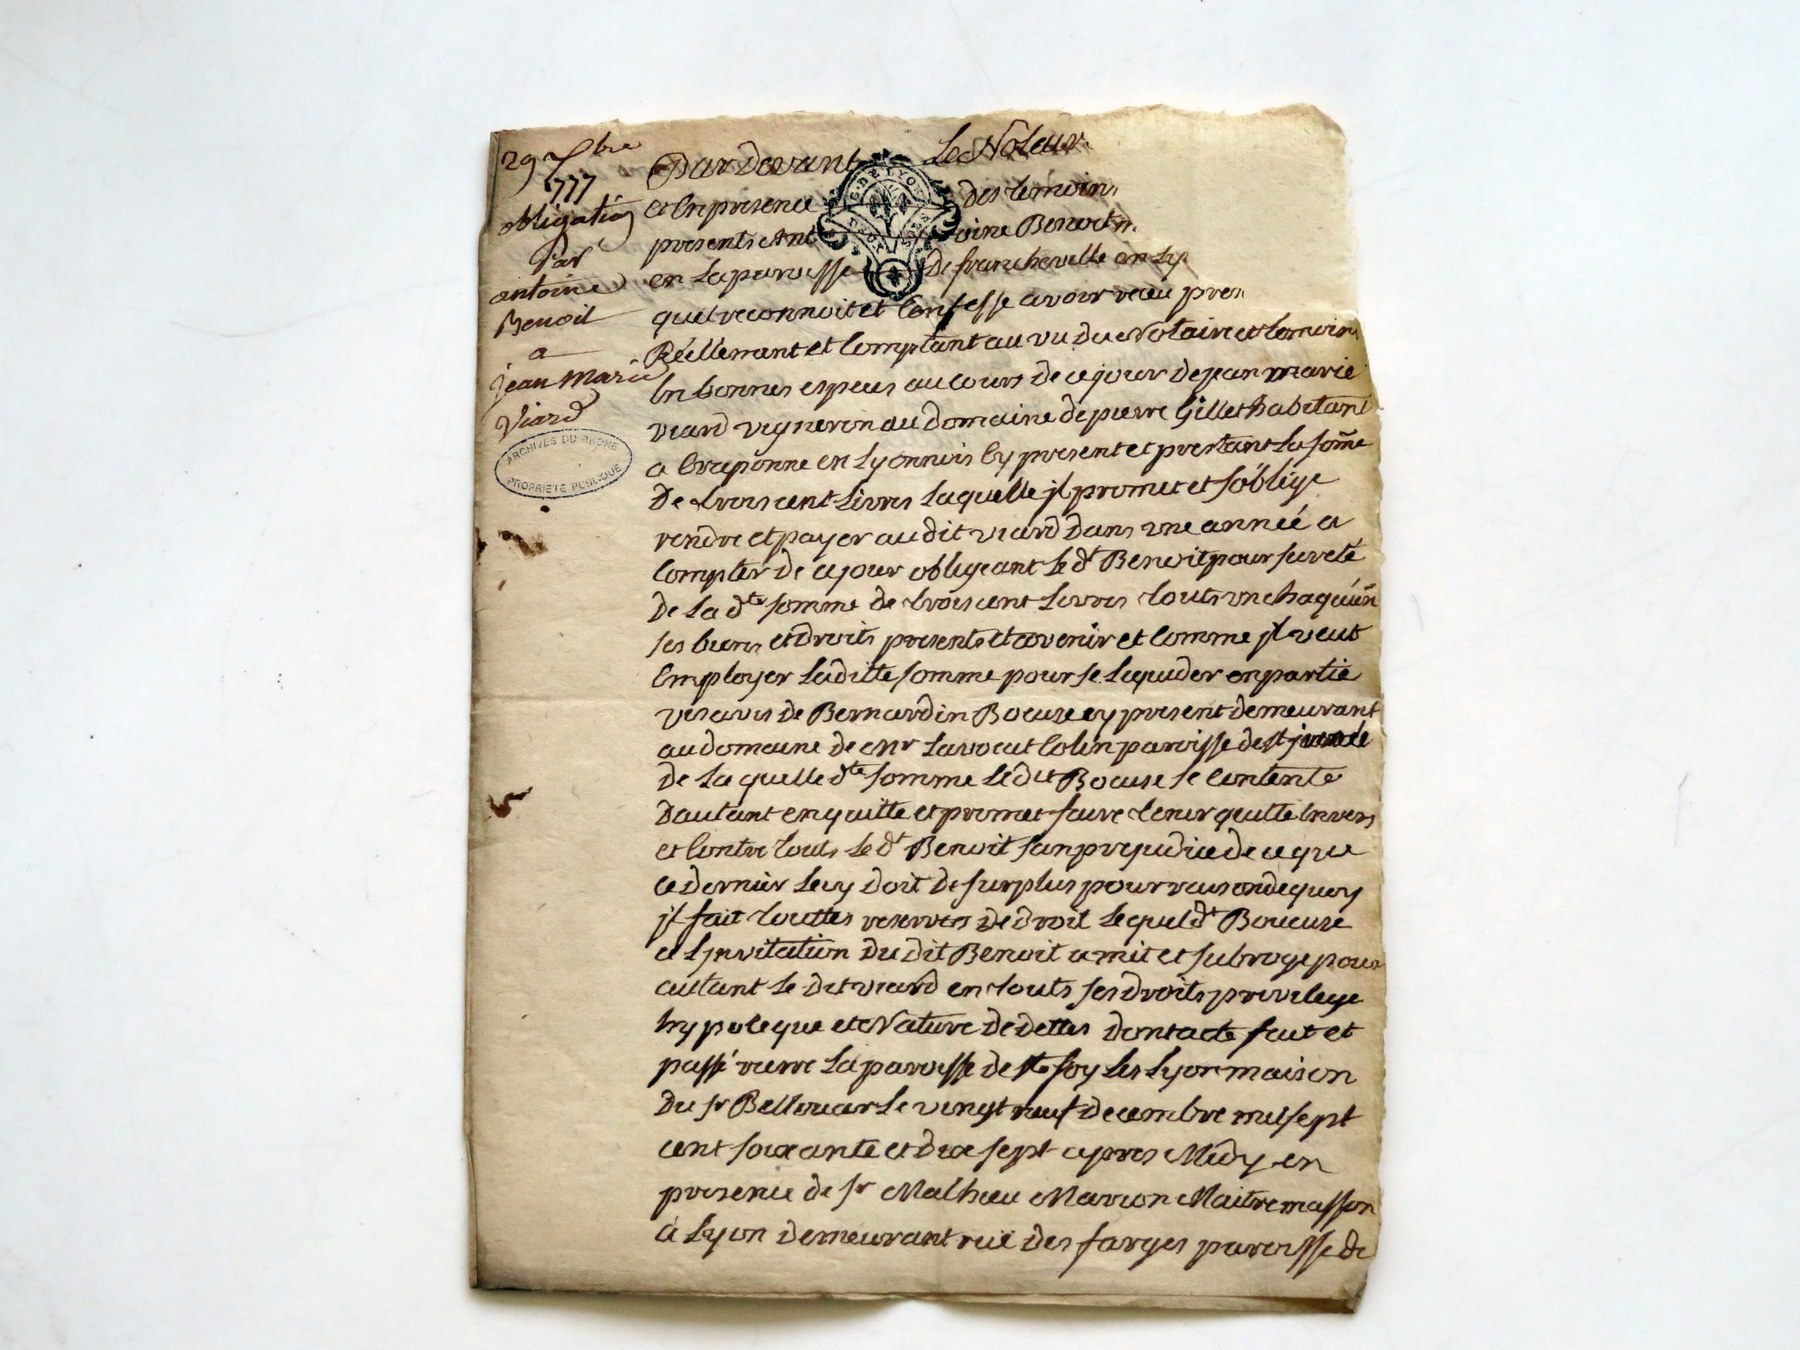 29 xbre
1777
obligation
Par
antoine
Benoit
a
jean Marie
Viard
ARCHIVES DU RHONE
PROPRIETE PUBLIQUE
G. DE LYON
DEUX S
Pardevant Le No
et En presence des temoins
presents Antoine Benoit
en La paroisse De francheville en Ly
quel reconnoit et Confesse avoir receu pres
Réellemant et Comptant au vu du Notaire et temoins
En bonnes especes au cours de ce jour de jean marie
viard vigneron au domaine de pierre Gillet habitant
a Craponne en Lyonnois Cy present et prestant La some
De trois cent Livres Laquelle jl promet et s'oblige
rendre et payer au dit viard Dans une année a
Compter De ce jour obligeant Le dt Benoit pour sureté
De La dte somme de trois cent Livres touts un chaqu'un
ses biens et droits presents et avenir et Comme jl veut
Employer Laditte somme pour se Liquider en partie
vis avis de Bernardin Bocuze cy present demeurant
au domaine de Mr Lavocat Colin paroisse de st
De La quelle dte somme Le dit Bocuse se Contente
Dautant en quitte et promet faire tenir quitte Envers
et Contre touts Le dt Benoit san prejudice de ce que
Ce dernier Luy doit De surplus pour raison de quoy
jl fait touttes reserves De droit Lequel dt Boucuse
a Ljnvitation du dit Benoit a mit et subroge pour
autant Le dit viard en touts ses droits privilege
hypoteque et Nature De dettes dont acte fait et
passé riere La paroisse de ste foy Les Lyon maison
Du sr Bellouar Le vingt neuf decembre mil sept
cent soixante et dix sept apres Midy en
presence de sr Mathieu Marion Maitre masson
à Lyon demeurant rue des farges paroisse de